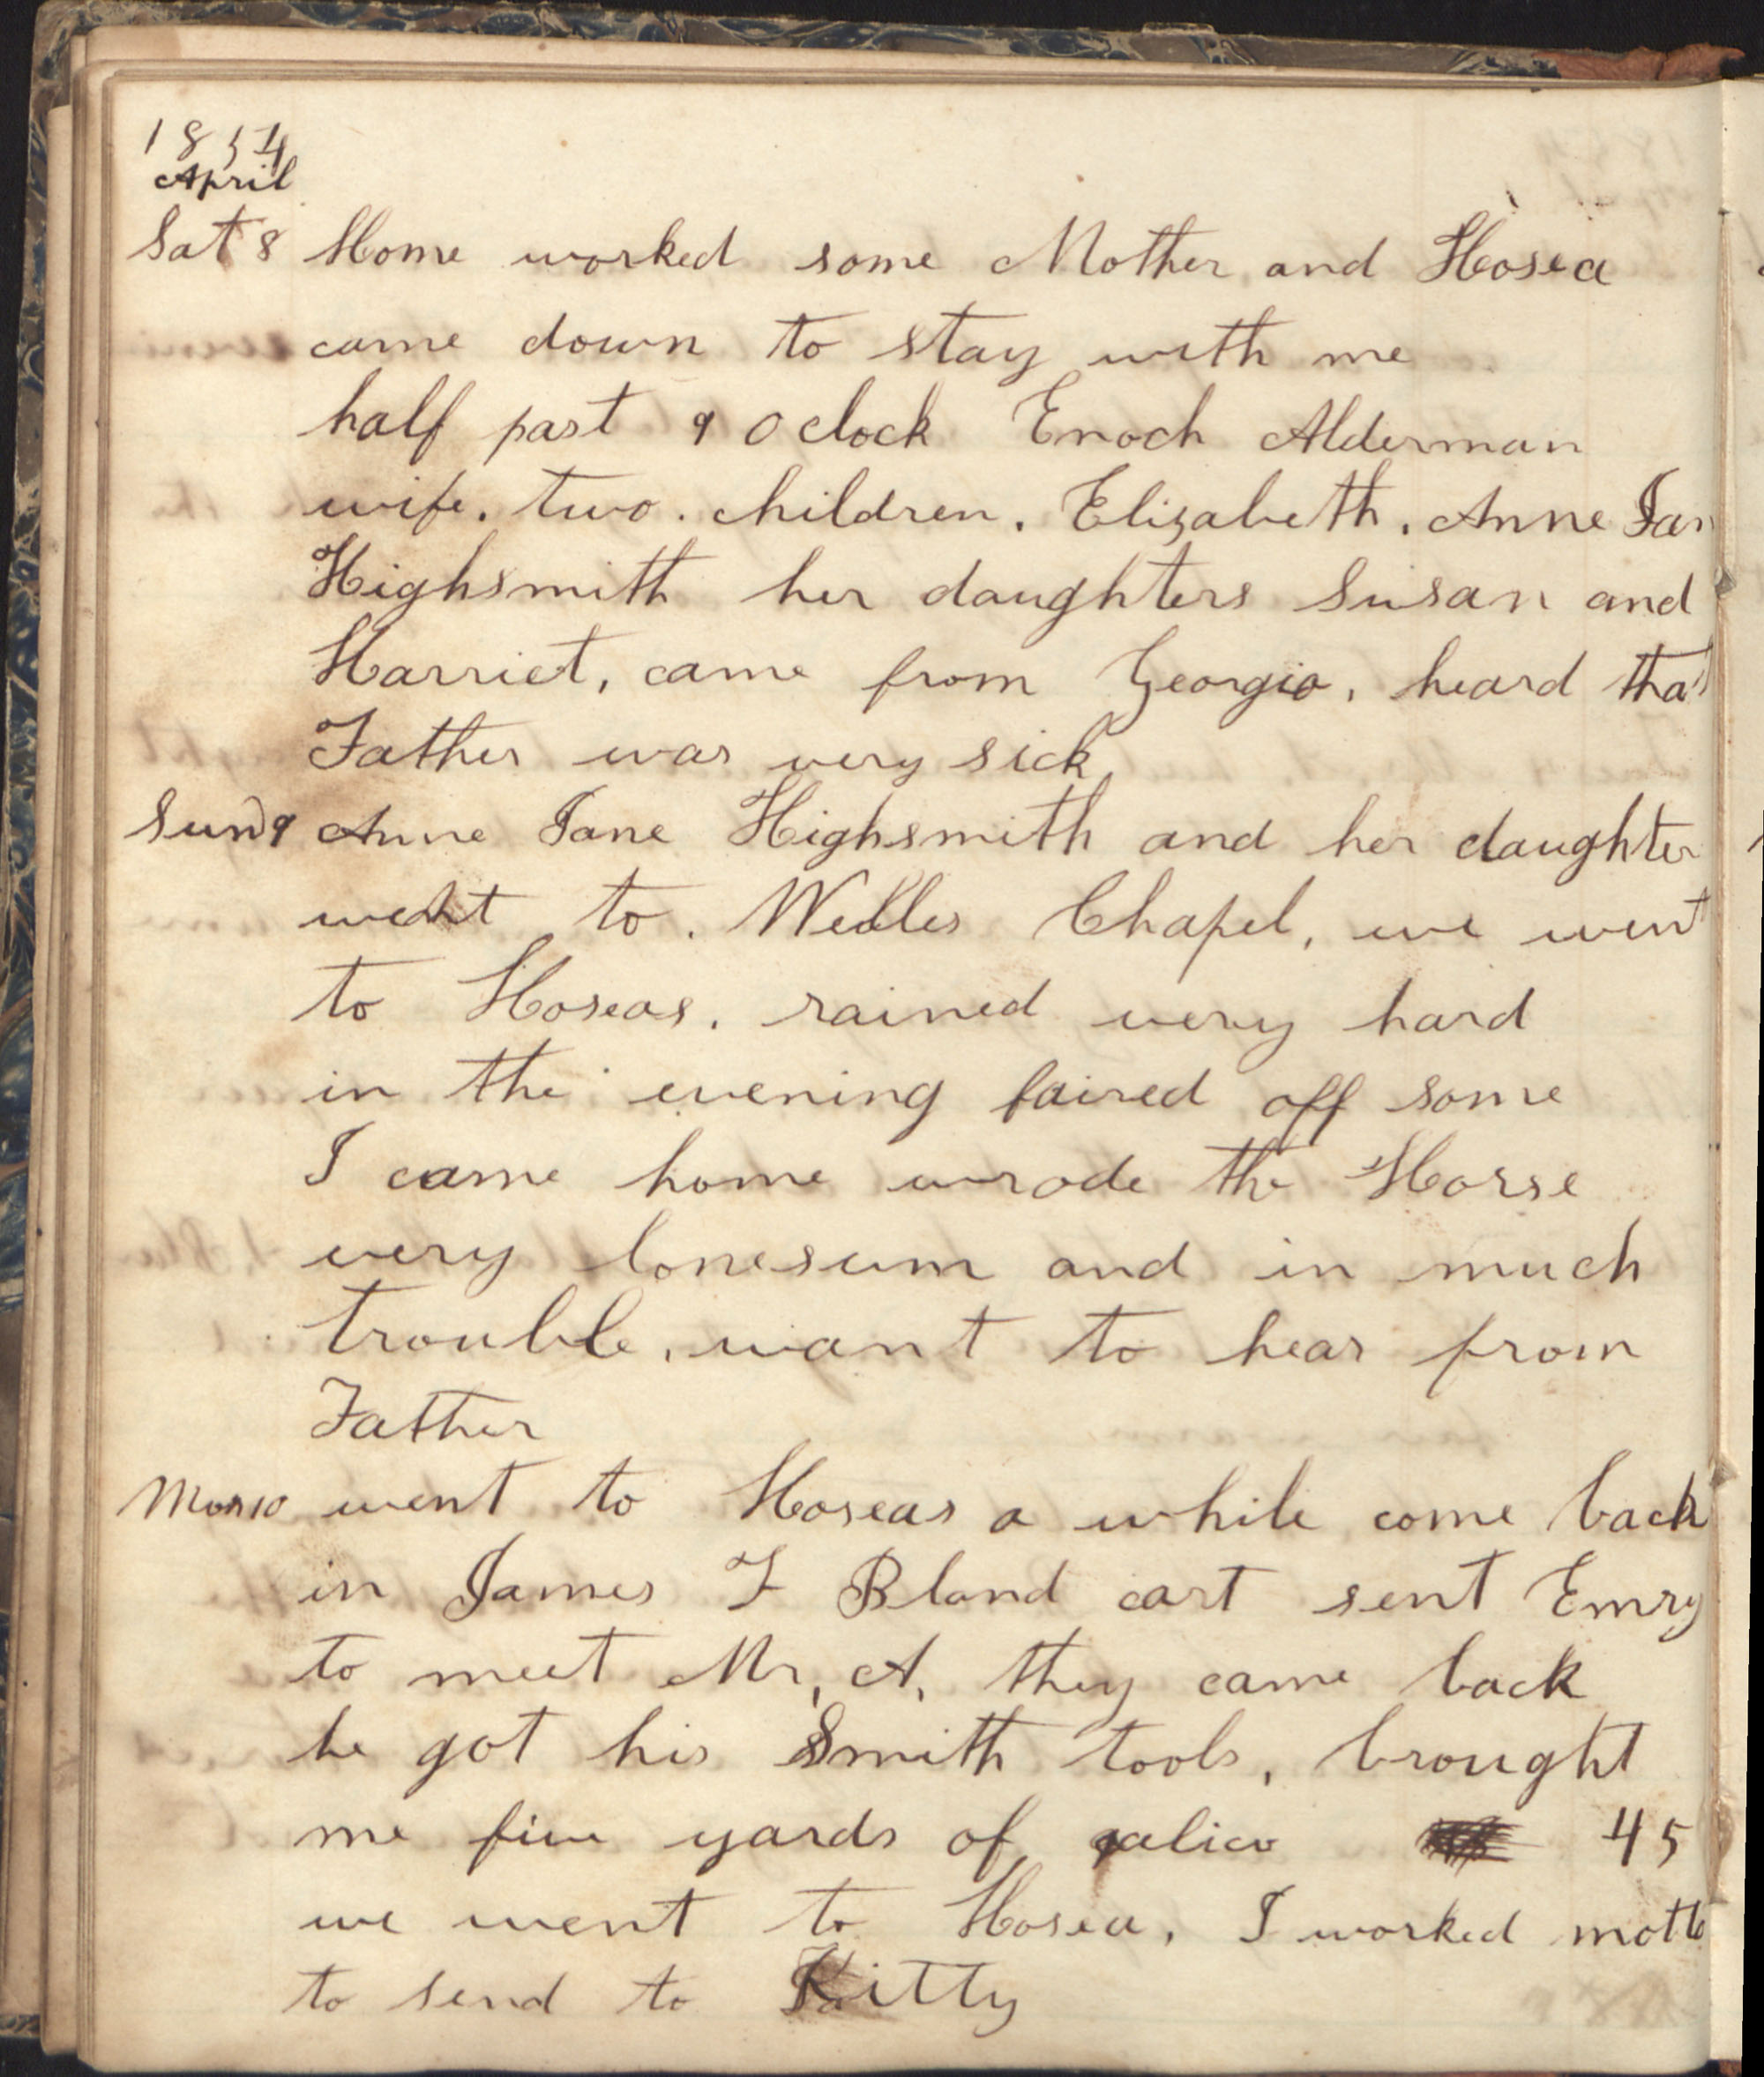 1854
April
Sat 8 Home worked some Mother and Hosea
came down to stay with me
half past 9 O clock Enoch Alderman
wife. two. children. Elizabeth. Anne Jan
Highsmith her daughters Susan and
Harriet, came from Georgia, heard that
Father was very sick
Sund 9 Anne Jane Highsmith and her daughter
went to. Wells Chapel, we went
to Hoseas. rained very hard
in the evening faired off some
I came home wrode the Horse
very lonesum and in much
trouble. want to hear from
Father
Mon 10 went to Hoseas a while come back
in James F Bland cart sent Emry
to meet Mr, A, they came back
he got his Smith tools, brought
me five yards of calico 45
we went to Hosea, I worked
to send to Kitty